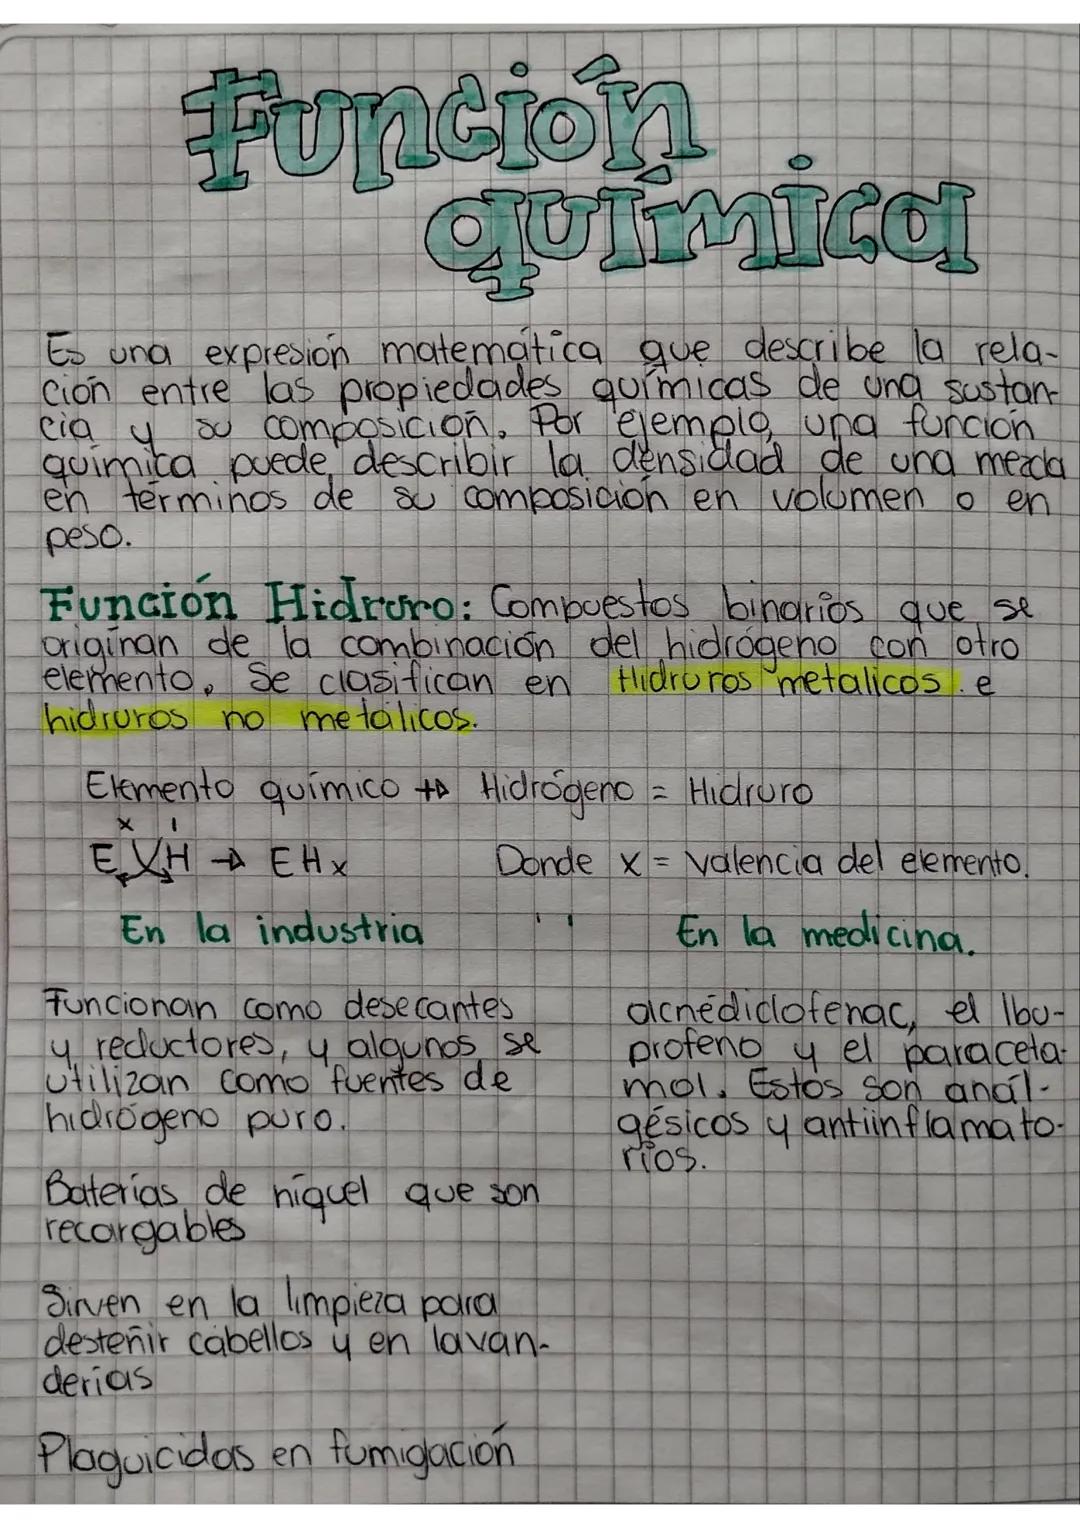 Función
química
Es una expresión matemática que describe la rela-
ción entre las propiedades químicas de una sustan-
cia y su composición. Por ejemplo, una función
química puede describir la densidad de una mezcla
en términos de su composición en volumen o en
peso.
Función Hidruro: Compuestos binarios que se
originan de la combinación del hidrógeno con otro
elemento. Se clasifican en Hidruros metalicos. e
hidruros no metálicos.
Elemento químico + → Hidrógeno = Hidruro
x 1
E H → EHx Donde x = valencia del elemento.
En la industria
Funcionan como desecantes
y reductores, y algunos se
utilizan como fuentes de
hidrógeno puro.
Baterías de níquel que son
recargables
Sirven en la limpieza para
desteñir cabellos y en lavan-
derias
Plaguicidas en fumigación
En la medicina.
acnédiclofenac, el Ibu-
profeno y el paraceta-
mol. Estos son anál-
gésicos y antiinflamato-
rios.